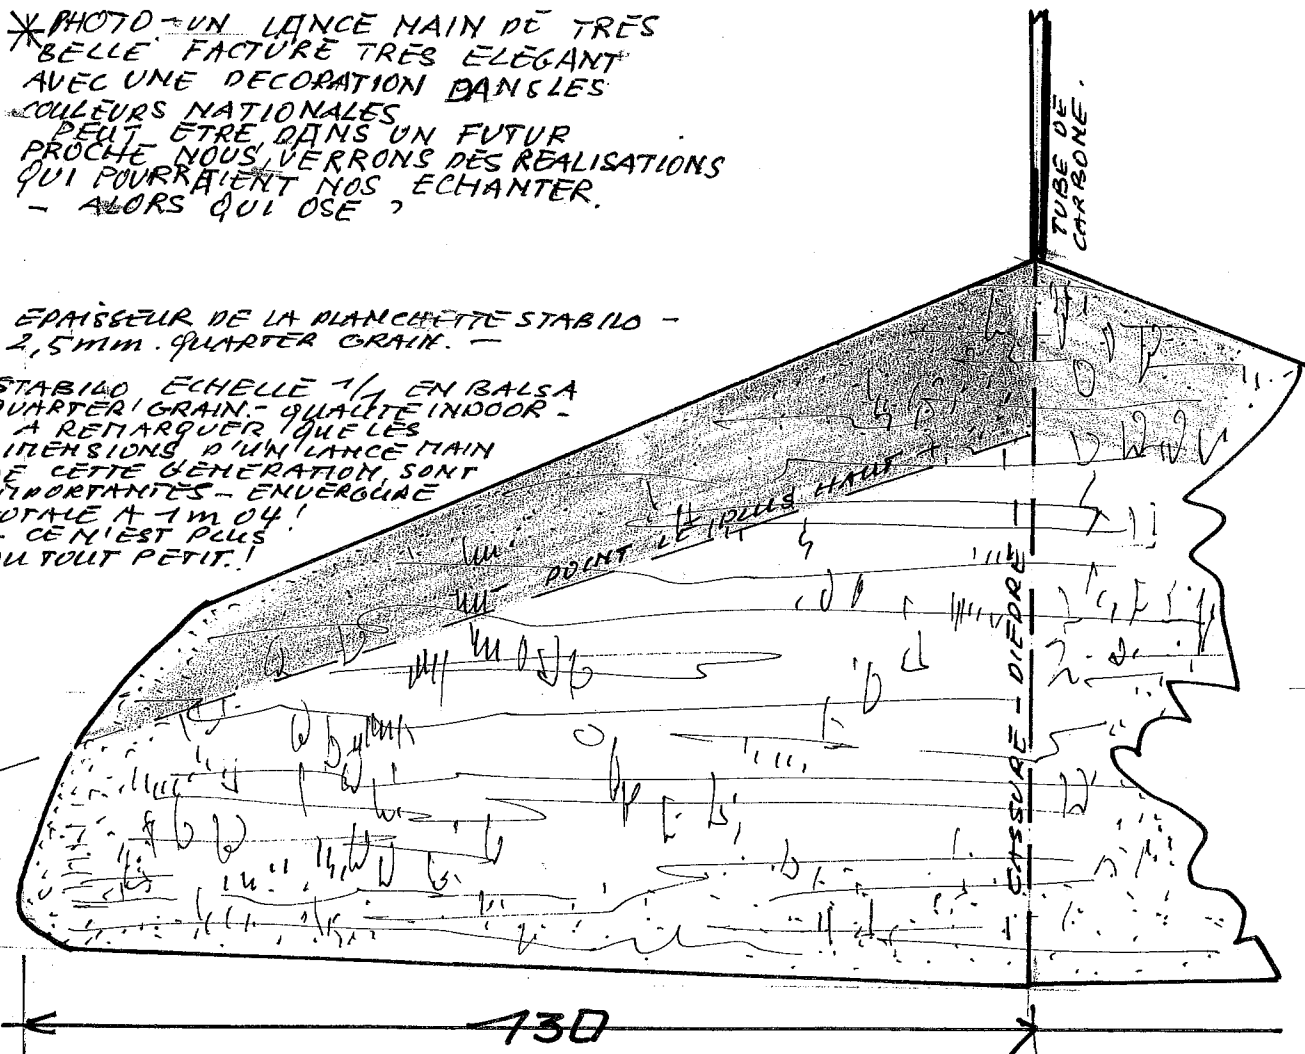 * PHOTO - UN LANCE MAIN DE TRES
BELLE FACTURE TRES ELEGANT
AVEC UNE DECORATION DANS LES
COULEURS NATIONALES
PEUT ETRE DANS UN FUTUR
PROCHE NOUS VERRONS DES REALISATIONS
QUI POURRAIENT NOS ECHANTER.
- ALORS QUI OSE ?
TUBE DE
CARBONE.
EPAISSEUR DE LA PLANCHETTE STABILO -
2,5mm. QUARTER GRAIN. -
STABILO ECHELLE 1/1 EN BALSA
QUARTER GRAIN. - QUALITE INDOOR -
A REMARQUER QUE LES
IMENSIONS D'UN LANCE MAIN
E CETTE GENERATION, SONT
MPORTANTES - ENVERGURE
OTALE A 1m 04!
- CE N'EST PLUS
U TOUT PETIT.!
POINT LE PLUS HAUT +
- CASSURE - DIEDRE -
130